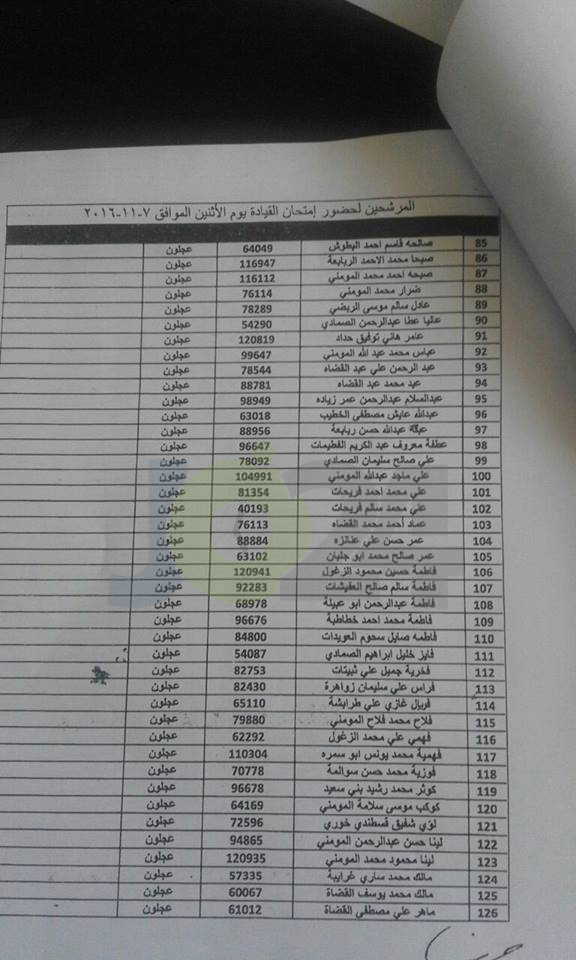 المرشحين لحضور إمتحان القيادة يوم الأثنين الموافق ٧-١١-٢٠١٦
85 صالحه قاسم احمد البطوش 64049 عجلون
86 صبحا محمد الاحمد الربابعة 116947 عجلون
87 صبحه احمد محمد المومني 116112 عجلون
88 ضرار محمد المومني 76114 عجلون
89 عادل سالم موسى الربضي 78289 عجلون
90 عاليا عطا عبدالرحمن الصمادي 54290 عجلون
91 عامر هاني توفيق حداد 120819 عجلون
92 عباس محمد عبد الله المومني 99647 عجلون
93 عبد الرحمن علي عبد القضاه 78544 عجلون
94 عبد محمد عبد القضاه 88781 عجلون
95 عبدالسلام عبدالرحمن عمر زياده 98949 عجلون
96 عبدالله عايش مصطفى الخطيب 63018 عجلون
97 عبدالله حسن ربابعة 88956 عجلون
98 عطفة معروف عبد الكريم القطيمات 96647 عجلون
99 علي صالح سليمان الصمادي 78092 عجلون
100 علي ماجد عبدالله المومني 104991 عجلون
101 علي محمد احمد فريحات 81354 عجلون
102 علي محمد سالم فريحات 40193 عجلون
103 عماد أحمد محمد القضاه 76113 عجلون
104 عمر حسن علي عنانزه 88884 عجلون
105 عمر صالح محمد ابو جلبان 63102 عجلون
106 فاطمة حسين محمود الزغول 120941 عجلون
107 فاطمة سالم صالح العليشات 92283 عجلون
108 فاطمة عبدالرحمن ابو عبيلة 68978 عجلون
109 فاطمة محمد احمد خطاطبة 96676 عجلون
110 فاطمه صايل سحوم العويدات 84800 عجلون
111 فايز خليل ابراهيم الصمادي 54087 عجلون
112 فخرية جميل علي ثبيتات 82753 عجلون
113 فراس علي سليمان زواهرة 82430 عجلون
114 فريال غازي علي طرابشة 65110 عجلون
115 فلاح محمد فلاح المومني 79880 عجلون
116 فهمي علي محمد الزغول 62292 عجلون
117 فهمية محمد يونس ابو سمره 110304 عجلون
118 فوزية محمد حسن سوالمة 70778 عجلون
119 كوثر محمد رشيد بني سعيد 96678 عجلون
120 كوكب موسى سلامة المومني 64169 عجلون
121 لؤي شفيق قسطندي خوري 72596 عجلون
122 لينا حسن عبدالرحمن المومني 94865 عجلون
123 لينا محمود محمد المومني 120935 عجلون
124 مالك محمد ساري غرايبة 57335 عجلون
125 مالك محمد يوسف القضاة 60067 عجلون
126 ماهر علي مصطفى القضاة 61012 عجلون